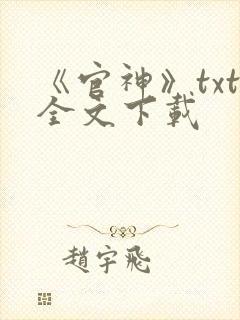 《官神》txt
全文下載
趙宇飛